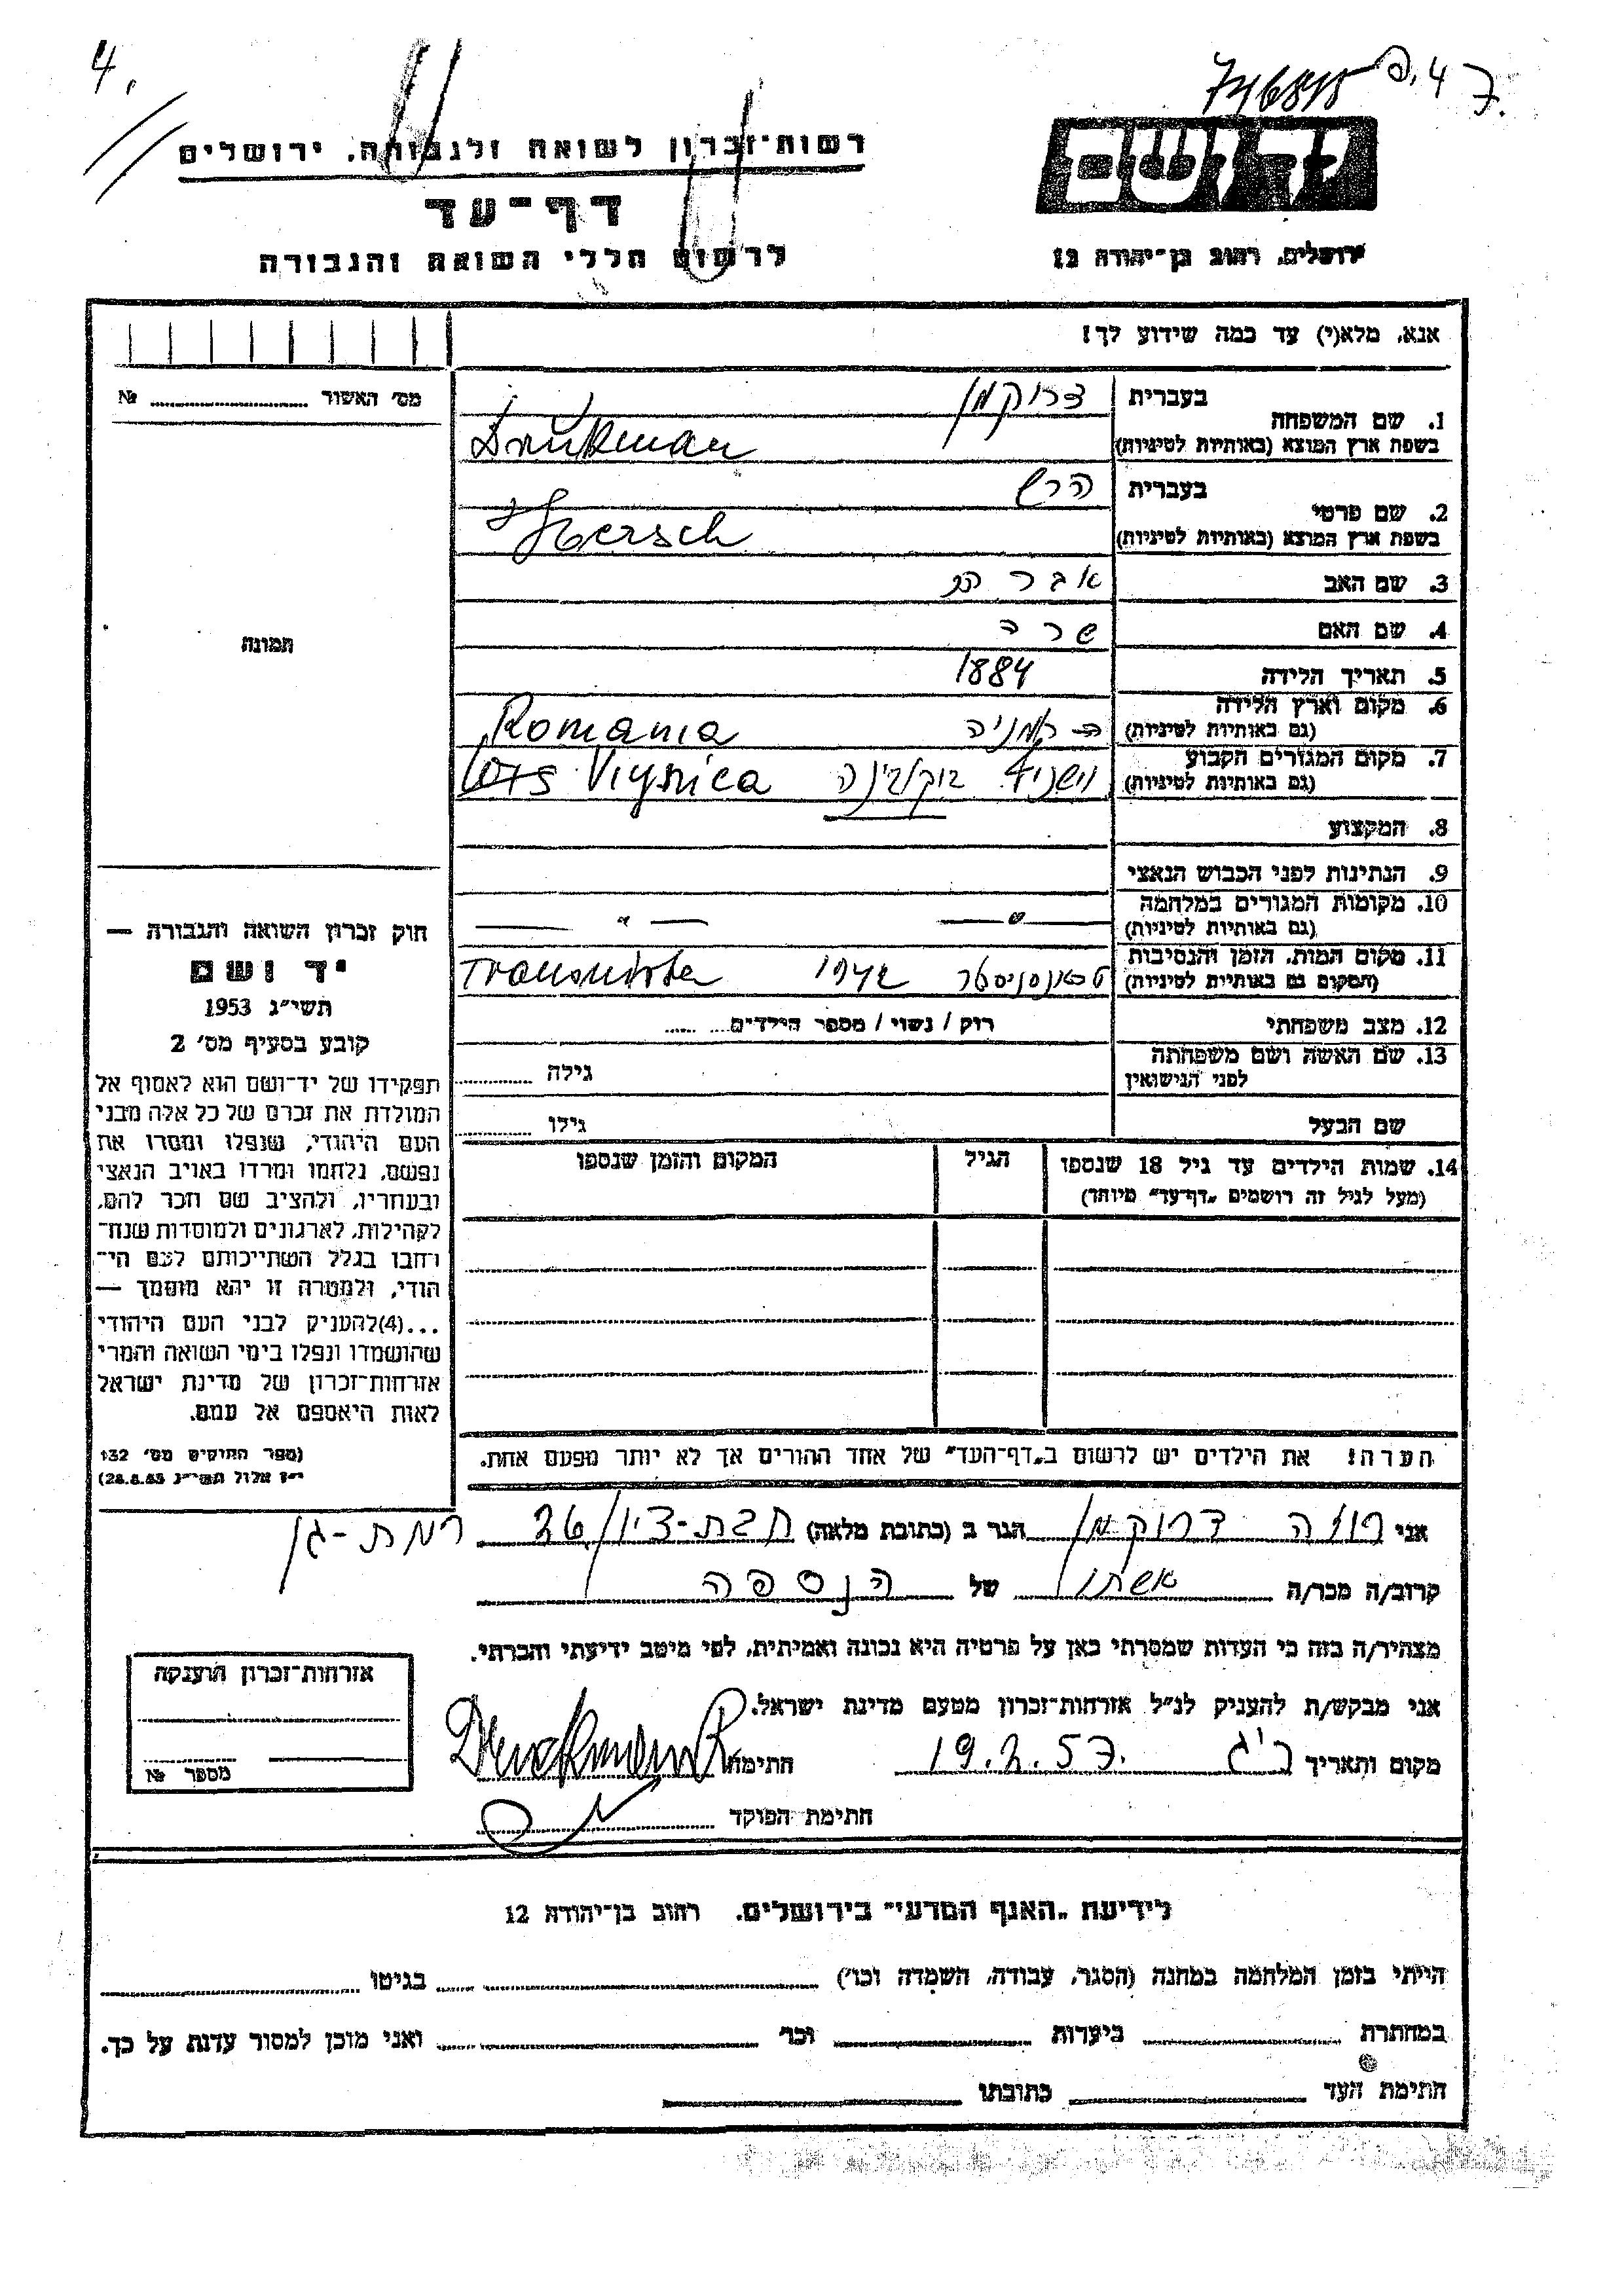 4.
7.
רשות־זכרון לשואה ולגבורה, ירושלים
דף־עד
לרשום חללי השואה והגבורה
יד ושם
ירושלים, רחוב בן־יהודה 12
אנא, מלא(י) עד כמה שידוע לך!
מס׳ האשור № 
1. שם המשפחה
בעברית דרוקמן
בשפת ארץ המוצא (באותיות לטיניות) Drukman
2. שם פרטי
בעברית הרש
בשפת ארץ המוצא (באותיות לטיניות) Hersch
3. שם האב אברהם
4. שם האם שרה
תמונה
5. תאריך הלידה 1884
6. מקום וארץ הלידה רומניה Romania
(גם באותיות לטיניות)
7. מקום המגורים הקבוע בוקובינה Viynica
(גם באותיות לטיניות)
8. המקצוע
9. הנתינות לפני הכבוש הנאצי
10. מקומות המגורים במלחמה — " — — " —
(גם באותיות לטיניות)
11. מקום המות, הזמן והנסיבות 1942
(המקום גם באותיות לטיניות)
12. מצב משפחתי רוק / נשוי / מספר הילדים
13. שם האשה ושם משפחתה
לפני הנישואין גילה
שם הבעל גילו
14. שמות הילדים עד גיל 18 שנספו הגיל המקום והזמן שנספו
(מעל לגיל זה רושמים „דף־עד" מיוחד)
הערה! את הילדים יש לרשום ב„דף־העד" של אחד ההורים אך לא יותר מפעם אחת.
חוק זכרון השואה והגבורה —
יד ושם
תשי״ג 1953
קובע בסעיף מס׳ 2
תפקידו של יד־ושם הוא לאסוף אל
המולדת את זכרם של כל אלה מבני
העם היהודי, שנפלו ומסרו את
נפשם, נלחמו ומרדו באויב הנאצי
ובעוזריו, ולהציב שם וזכר להם,
לקהילות, לארגונים ולמוסדות שנח־
רבו בגלל השתייכותם לעם הי־
הודי, ולמטרה זו יהא מוסמך —
...(4)להעניק לבני העם היהודי
שהושמדו ונפלו בימי השואה והמרי
אזרחות־זכרון של מדינת ישראל
לאות היאספם אל עמם.
(ספר החוקים מס׳ 132
י״ז אלול תשי״ג 28.8.53)
אני רוזה דרוקמן הגר ב (כתובת מלאה) חבת-ציון 26 רמת-גן
קרוב/ה מכר/ה אשתו של הנספה
מצהיר/ה בזה כי העדות שמסרתי כאן על פרטיה היא נכונה ואמיתית, לפי מיטב ידיעתי והכרתי.
אני מבקש/ת להעניק לנ״ל אזרחות־זכרון מטעם מדינת ישראל.
מקום ותאריך ר״ג 19.2.57. חתימה Druckmann R
חתימת הפוקד
אזרחות־זכרון הוענקה
מספר №
לידיעת „האגף המדעי" בירושלים, רחוב בן־יהודה 12
הייתי בזמן המלחמה במחנה (הסגר, עבודה, השמדה וכו׳) בגיטו
במחתרת ביערות וכו׳ ואני מוכן למסור עדות על כך.
חתימת העד כתובתו